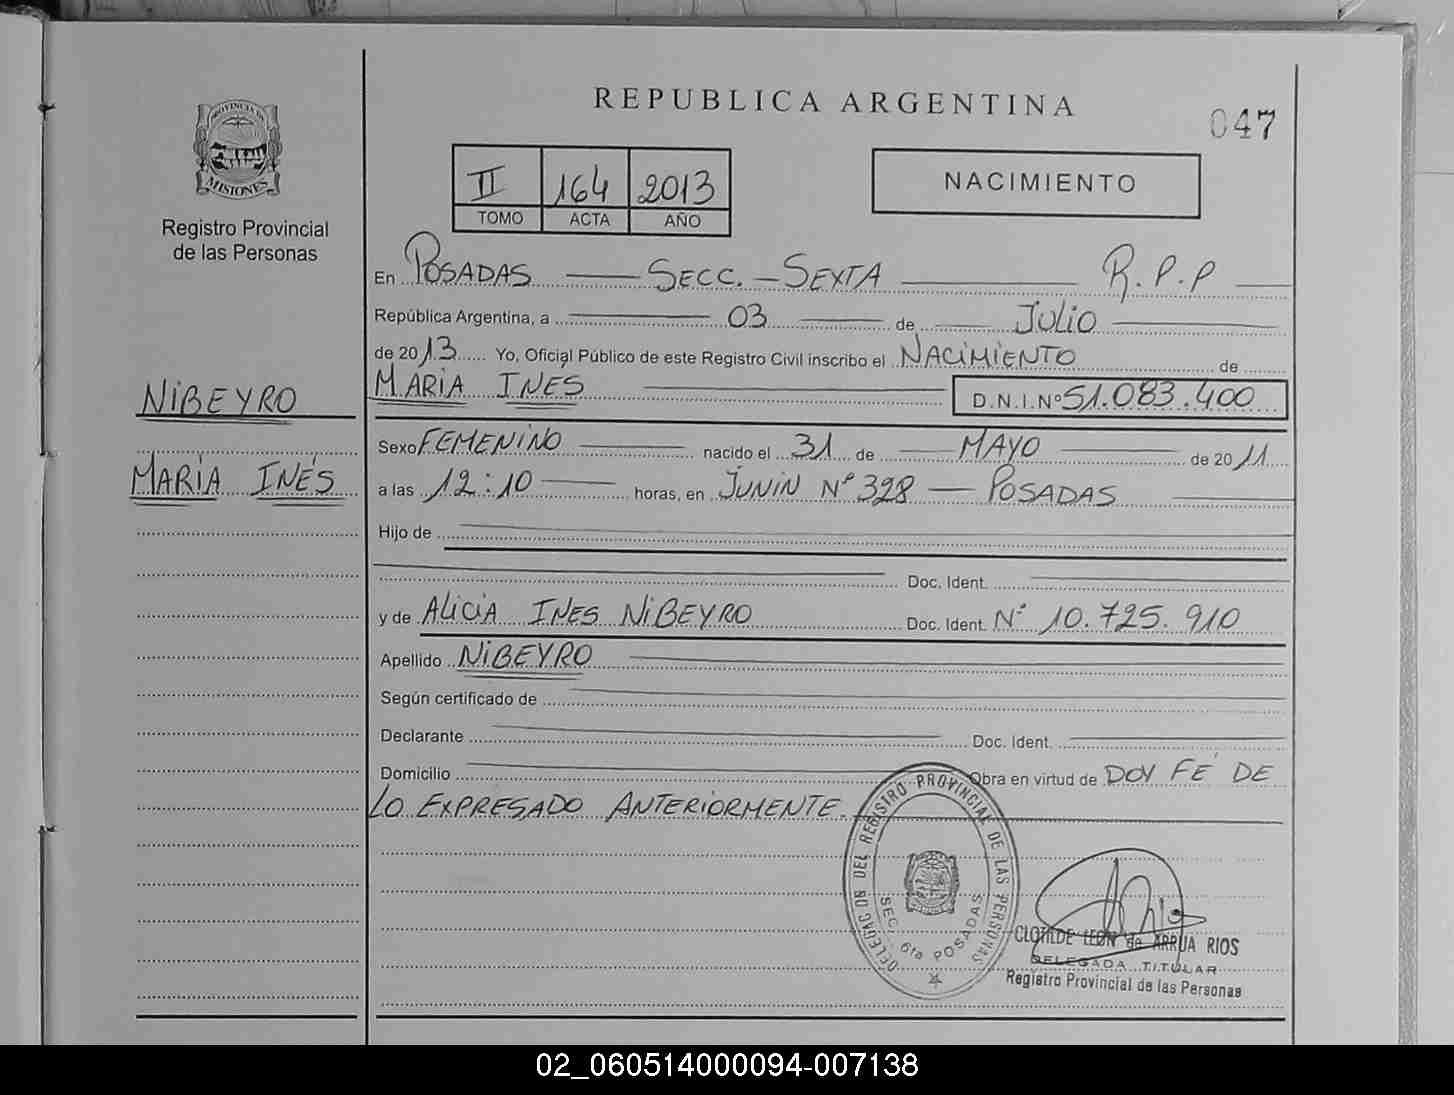 REPUBLICA ARGENTINA
047
PROVINCIA DE
MISIONES
Registro Provincial
de las Personas
II 164 2013
TOMO ACTA AÑO
NACIMIENTO
En POSADAS — SECC. - SEXTA — R.P.P —
República Argentina, a — 03 — de — JULIO —
de 2013 Yo, Oficial Público de este Registro Civil inscribo el NACIMIENTO de
MARIA INES — D.N.I.Nº 51.083.400
NIBEYRO
MARIA INÉS
Sexo FEMENINO — nacido el 31 de — MAYO — de 2011
a las 12:10 — horas, en JUNIN Nº 328 — POSADAS —
Hijo de —
— Doc. Ident. —
y de ALICIA INES NIBEYRO Doc. Ident. Nº 10.725.910
Apellido NIBEYRO —
Según certificado de —
Declarante — Doc. Ident. —
Domicilio — Obra en virtud de DOY FÉ DE
LO EXPRESADO ANTERIORMENTE. —
DELEGACION DEL REGISTRO PROVINCIAL DE LAS PERSONAS
SEC. 6ta POSADAS
CLOTILDE LEON de ARRUA RIOS
DELEGADA TITULAR
Registro Provincial de las Personas
02_060514000094-007138